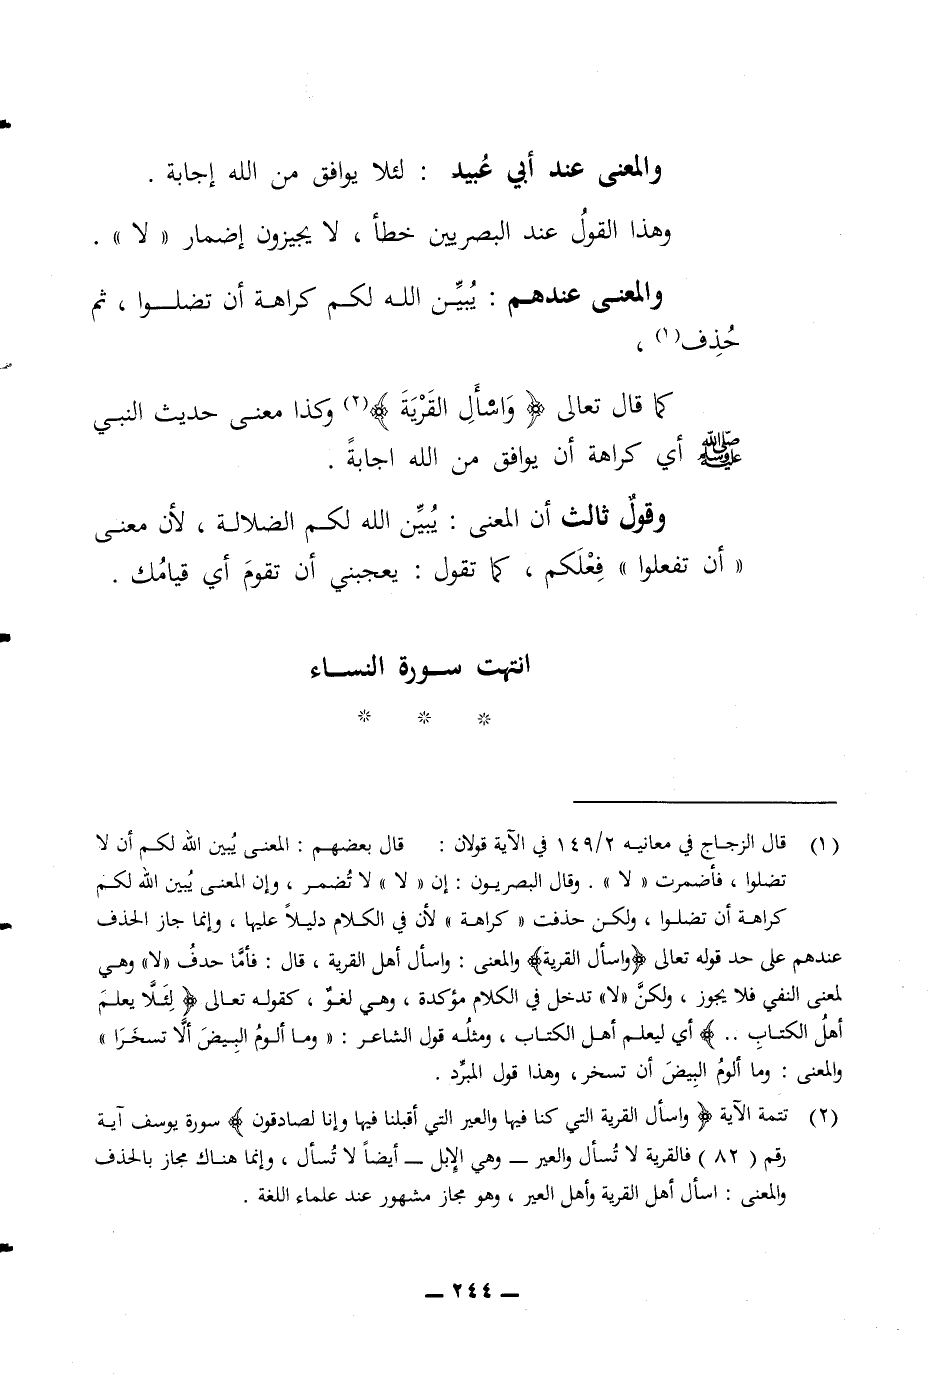 والمعنى عند أبي عُبيد : لئلا يوافق من الله إجابة .
وهذا القولُ عند البصريين خطأ ، لا يجيزون إضمار « لا » .
والمعنى عندهم : يُبيِّن الله لكم كراهة أن تضلوا ، ثم
حُذِف(١) ،
كما قال تعالى ﴿ وَاسْأَلِ القَرْيَةَ ﴾(٢) وكذا معنى حديث النبي
ﷺ أي كراهة أن يوافق من الله اجابةً .
وقولٌ ثالث أن المعنى : يُبيِّن الله لكم الضلالة ، لأن معنى
« أن تفعلوا » فِعْلَكم ، كما تقول : يعجبني أن تقومَ أي قيامُك .
انتهت سورة النساء
* * *
(١) قال الزجاج في معانيه ١٤٩/٢ في الآية قولان : قال بعضهم : المعنى يُبين الله لكم أن لا
تضلوا ، فأضمرت « لا » . وقال البصريون : إن « لا » لا تُضمر ، وإن المعنى يُبين الله لكم
كراهة أن تضلوا ، ولكن حذفت « كراهة » لأن في الكلام دليلاً عليها ، وإنما جاز الحذف
عندهم على حد قوله تعالى ﴿واسأل القرية﴾ والمعنى : واسأل أهل القرية ، قال : فأمَّا حدفُ «لا» وهي
لمعنى النفي فلا يجوز ، ولكنَّ «لا» تدخل في الكلام مؤكدة ، وهي لغوٌ ، كقوله تعالى ﴿ لِئَلَّا يعلمَ
أهلُ الكتابِ .. ﴾ أي ليعلم أهل الكتاب ، ومثلُه قول الشاعر : « وما ألومُ البِيضَ ألَّا تسخَرَا »
والمعنى : وما ألومُ البِيضَ أن تسخر ، وهذا قول المبرِّد .
(٢) تتمة الآية ﴿ واسأل القرية التي كنا فيها والعير التي أقبلنا فيها وإنا لصادقون ﴾ سورة يوسف آية
رقم ( ٨٢ ) فالقرية لا تُسأل والعير ــ وهي الإبل ــ أيضاً لا تُسأل ، وإنما هناك مجاز بالحذف
والمعنى : اسأل أهل القرية وأهل العير ، وهو مجاز مشهور عند علماء اللغة .
ــ ٢٤٤ ــ